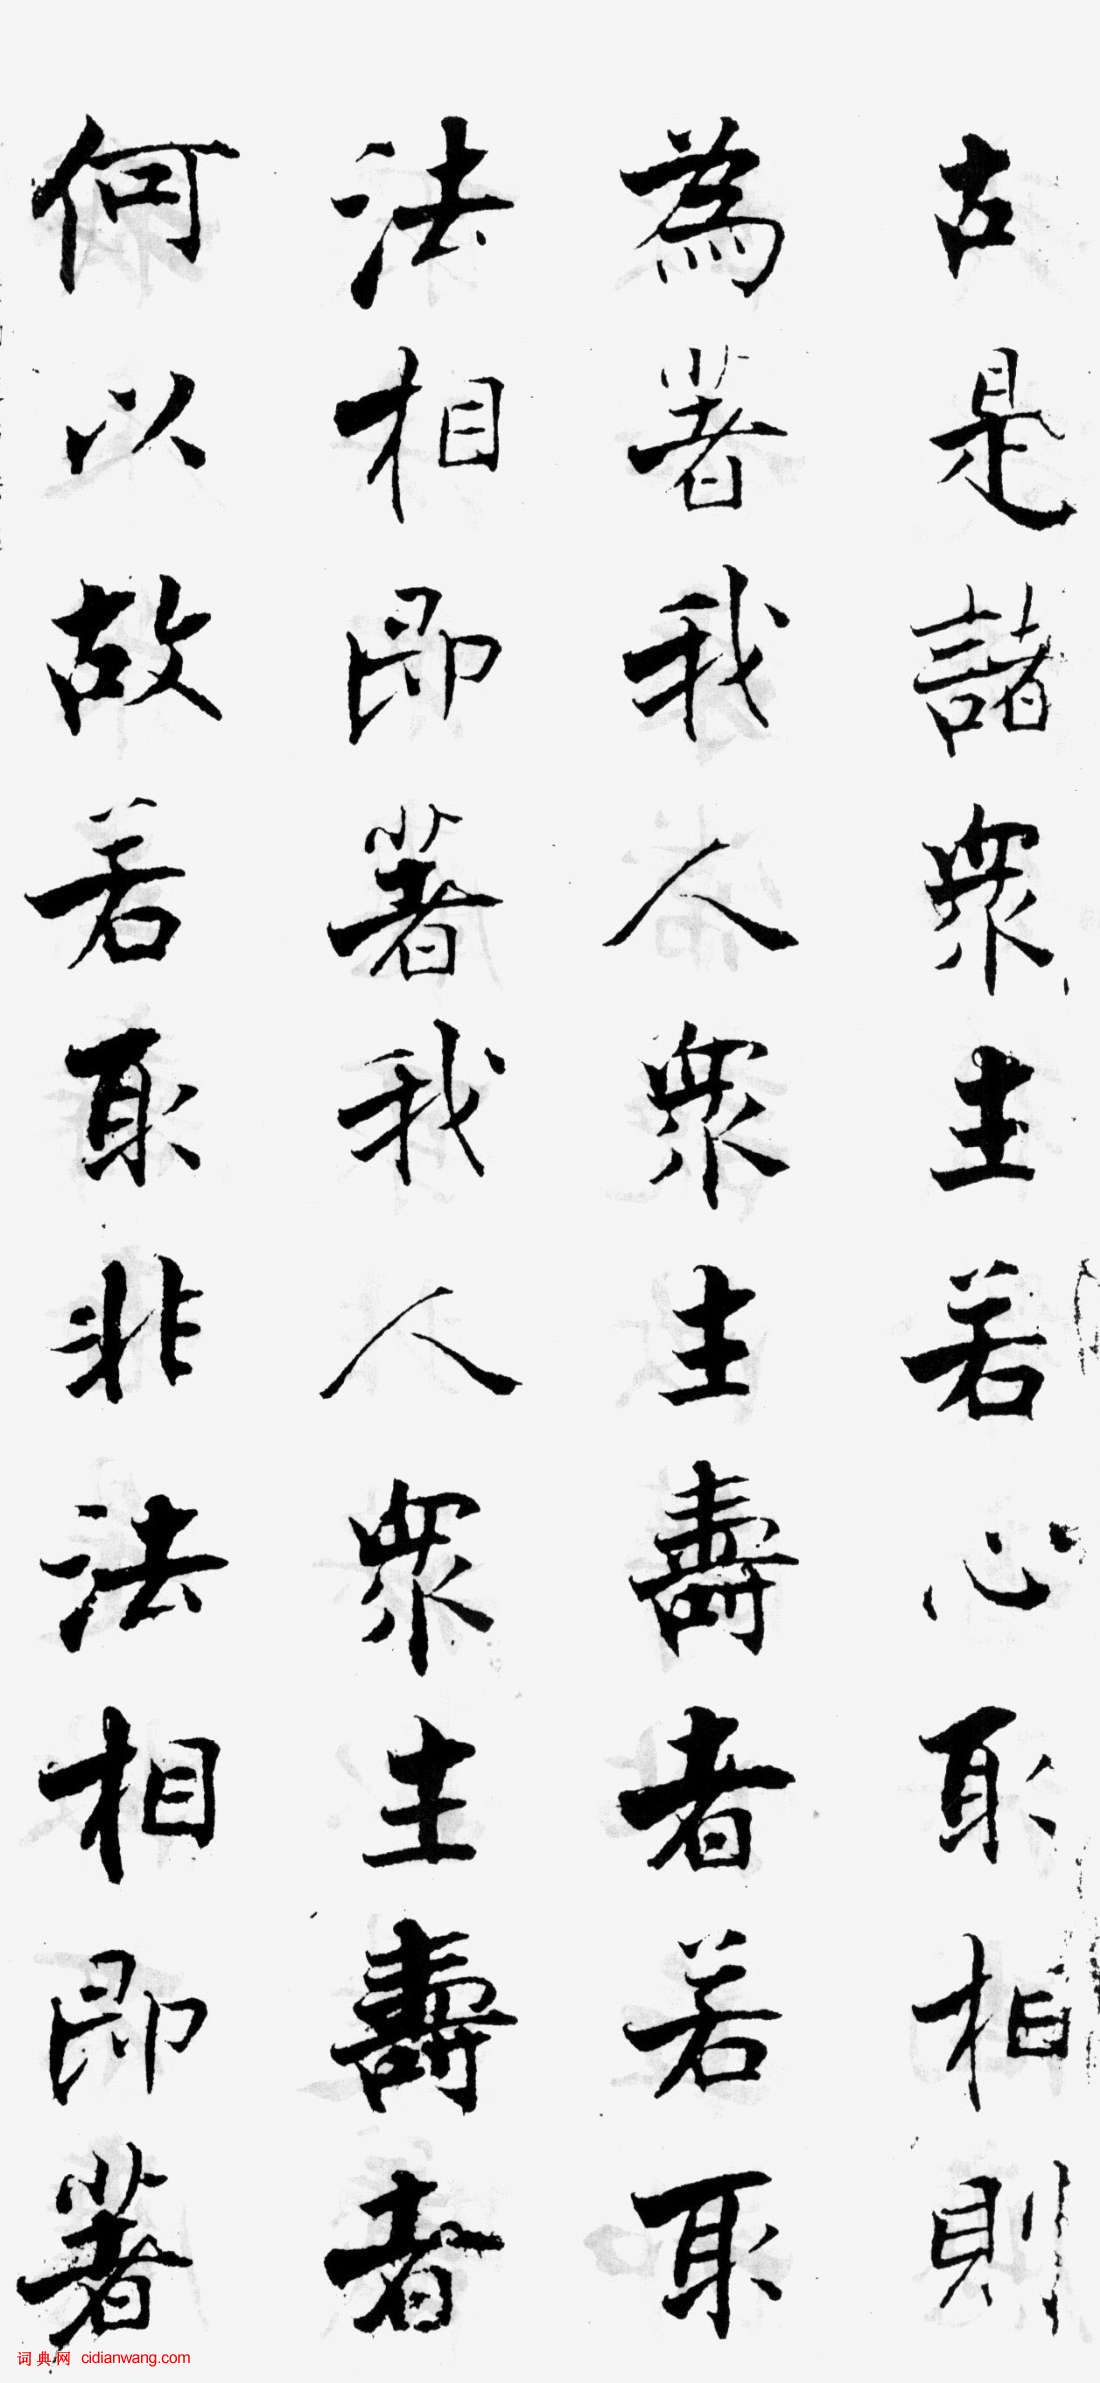 故是諸衆生若心取相則
為著我人衆生壽者若取
法相即著我人衆生壽者
何以故若取非法相即著
词典网 cidianwang.com